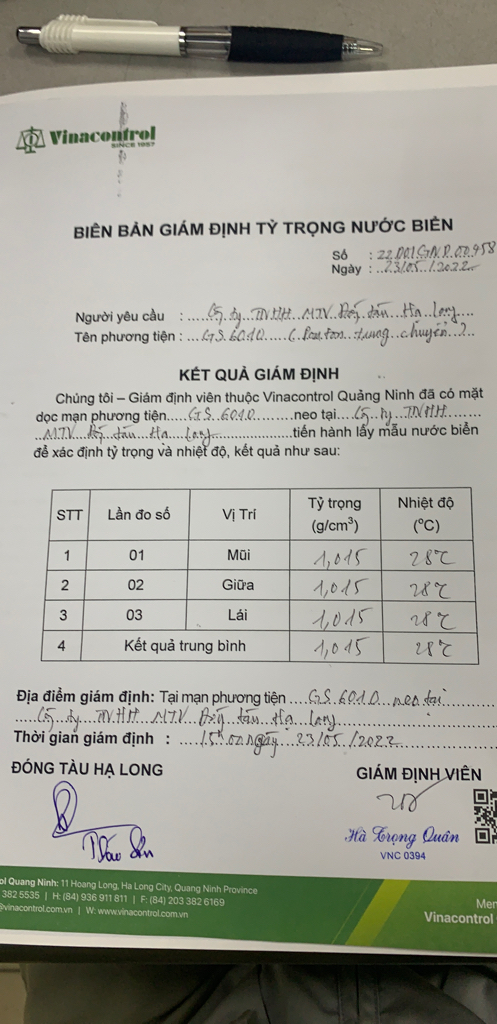 Vinacontrol
SINCE 1957
BIÊN BẢN GIÁM ĐỊNH TỶ TRỌNG NƯỚC BIỂN
Số : 22D01GND.00958
Ngày : ..23/05./2022..
Người yêu cầu : ....Cty. ty. TNHH..MTV Đóng tàu Hạ Long....
Tên phương tiện : ...GS.6010.... ( Ponton trung chuyển )
KẾT QUẢ GIÁM ĐỊNH
Chúng tôi – Giám định viên thuộc Vinacontrol Quảng Ninh đã có mặt
dọc mạn phương tiện....GS.6010.......neo tại...Cty TNHH.......
..MTV Đóng tàu Hạ Long...................tiến hành lấy mẫu nước biển
để xác định tỷ trọng và nhiệt độ, kết quả như sau:
STT Lần đo số Vị Trí Tỷ trọng (g/cm³) Nhiệt độ (⁰C)
1 01 Mũi 1,015 28℃
2 02 Giữa 1,015 28℃
3 03 Lái 1,015 28℃
4 Kết quả trung bình 1,015 28℃
Địa điểm giám định: Tại mạn phương tiện ...GS.6010 neo tại
....Cty TNHH MTV Đóng tàu Hạ Long..........
Thời gian giám định : ....15h00 ngày..23/05./2022..
ĐÓNG TÀU HẠ LONG GIÁM ĐỊNH VIÊN
Hà Trọng Quân
VNC 0394
ol Quang Ninh: 11 Hoang Long, Ha Long City, Quang Ninh Province
382 5535 | H: (84) 936 911 811 | F: (84) 203 382 6169
@vinacontrol.com.vn | W: www.vinacontrol.com.vn
Vinacontrol